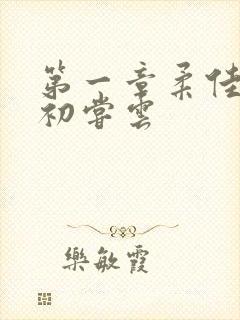 第一章柔佳
初尝雲
樂敏霞